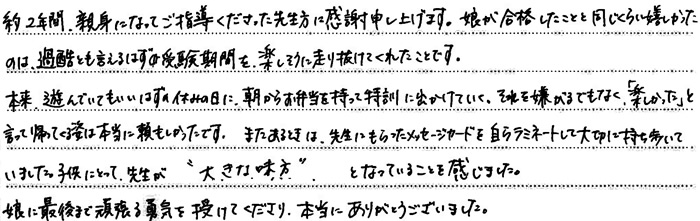 約2年間、親身になってご指導くださった先生方に感謝申し上げます。娘が合格したことと同じくらい嬉しかった
のは、過酷とも言えるはずの受験期間を、楽しそうに走り抜けてくれたことです。
本来、遊んでいてもいいはずの休みの日に、朝からお弁当を持って特訓に出かけていく。それを嫌がるでもなく、「楽しかった」と
言って帰ってくる姿は本当に頼もしかったです。またあるときは、先生にもらったメッセージカードを自らラミネートして大切に持ち歩いて
いました。子供にとって、先生が "大きな味方" となっていることを感じました。
娘に最後まで頑張る勇気を授けてくださり、本当にありがとうございました。